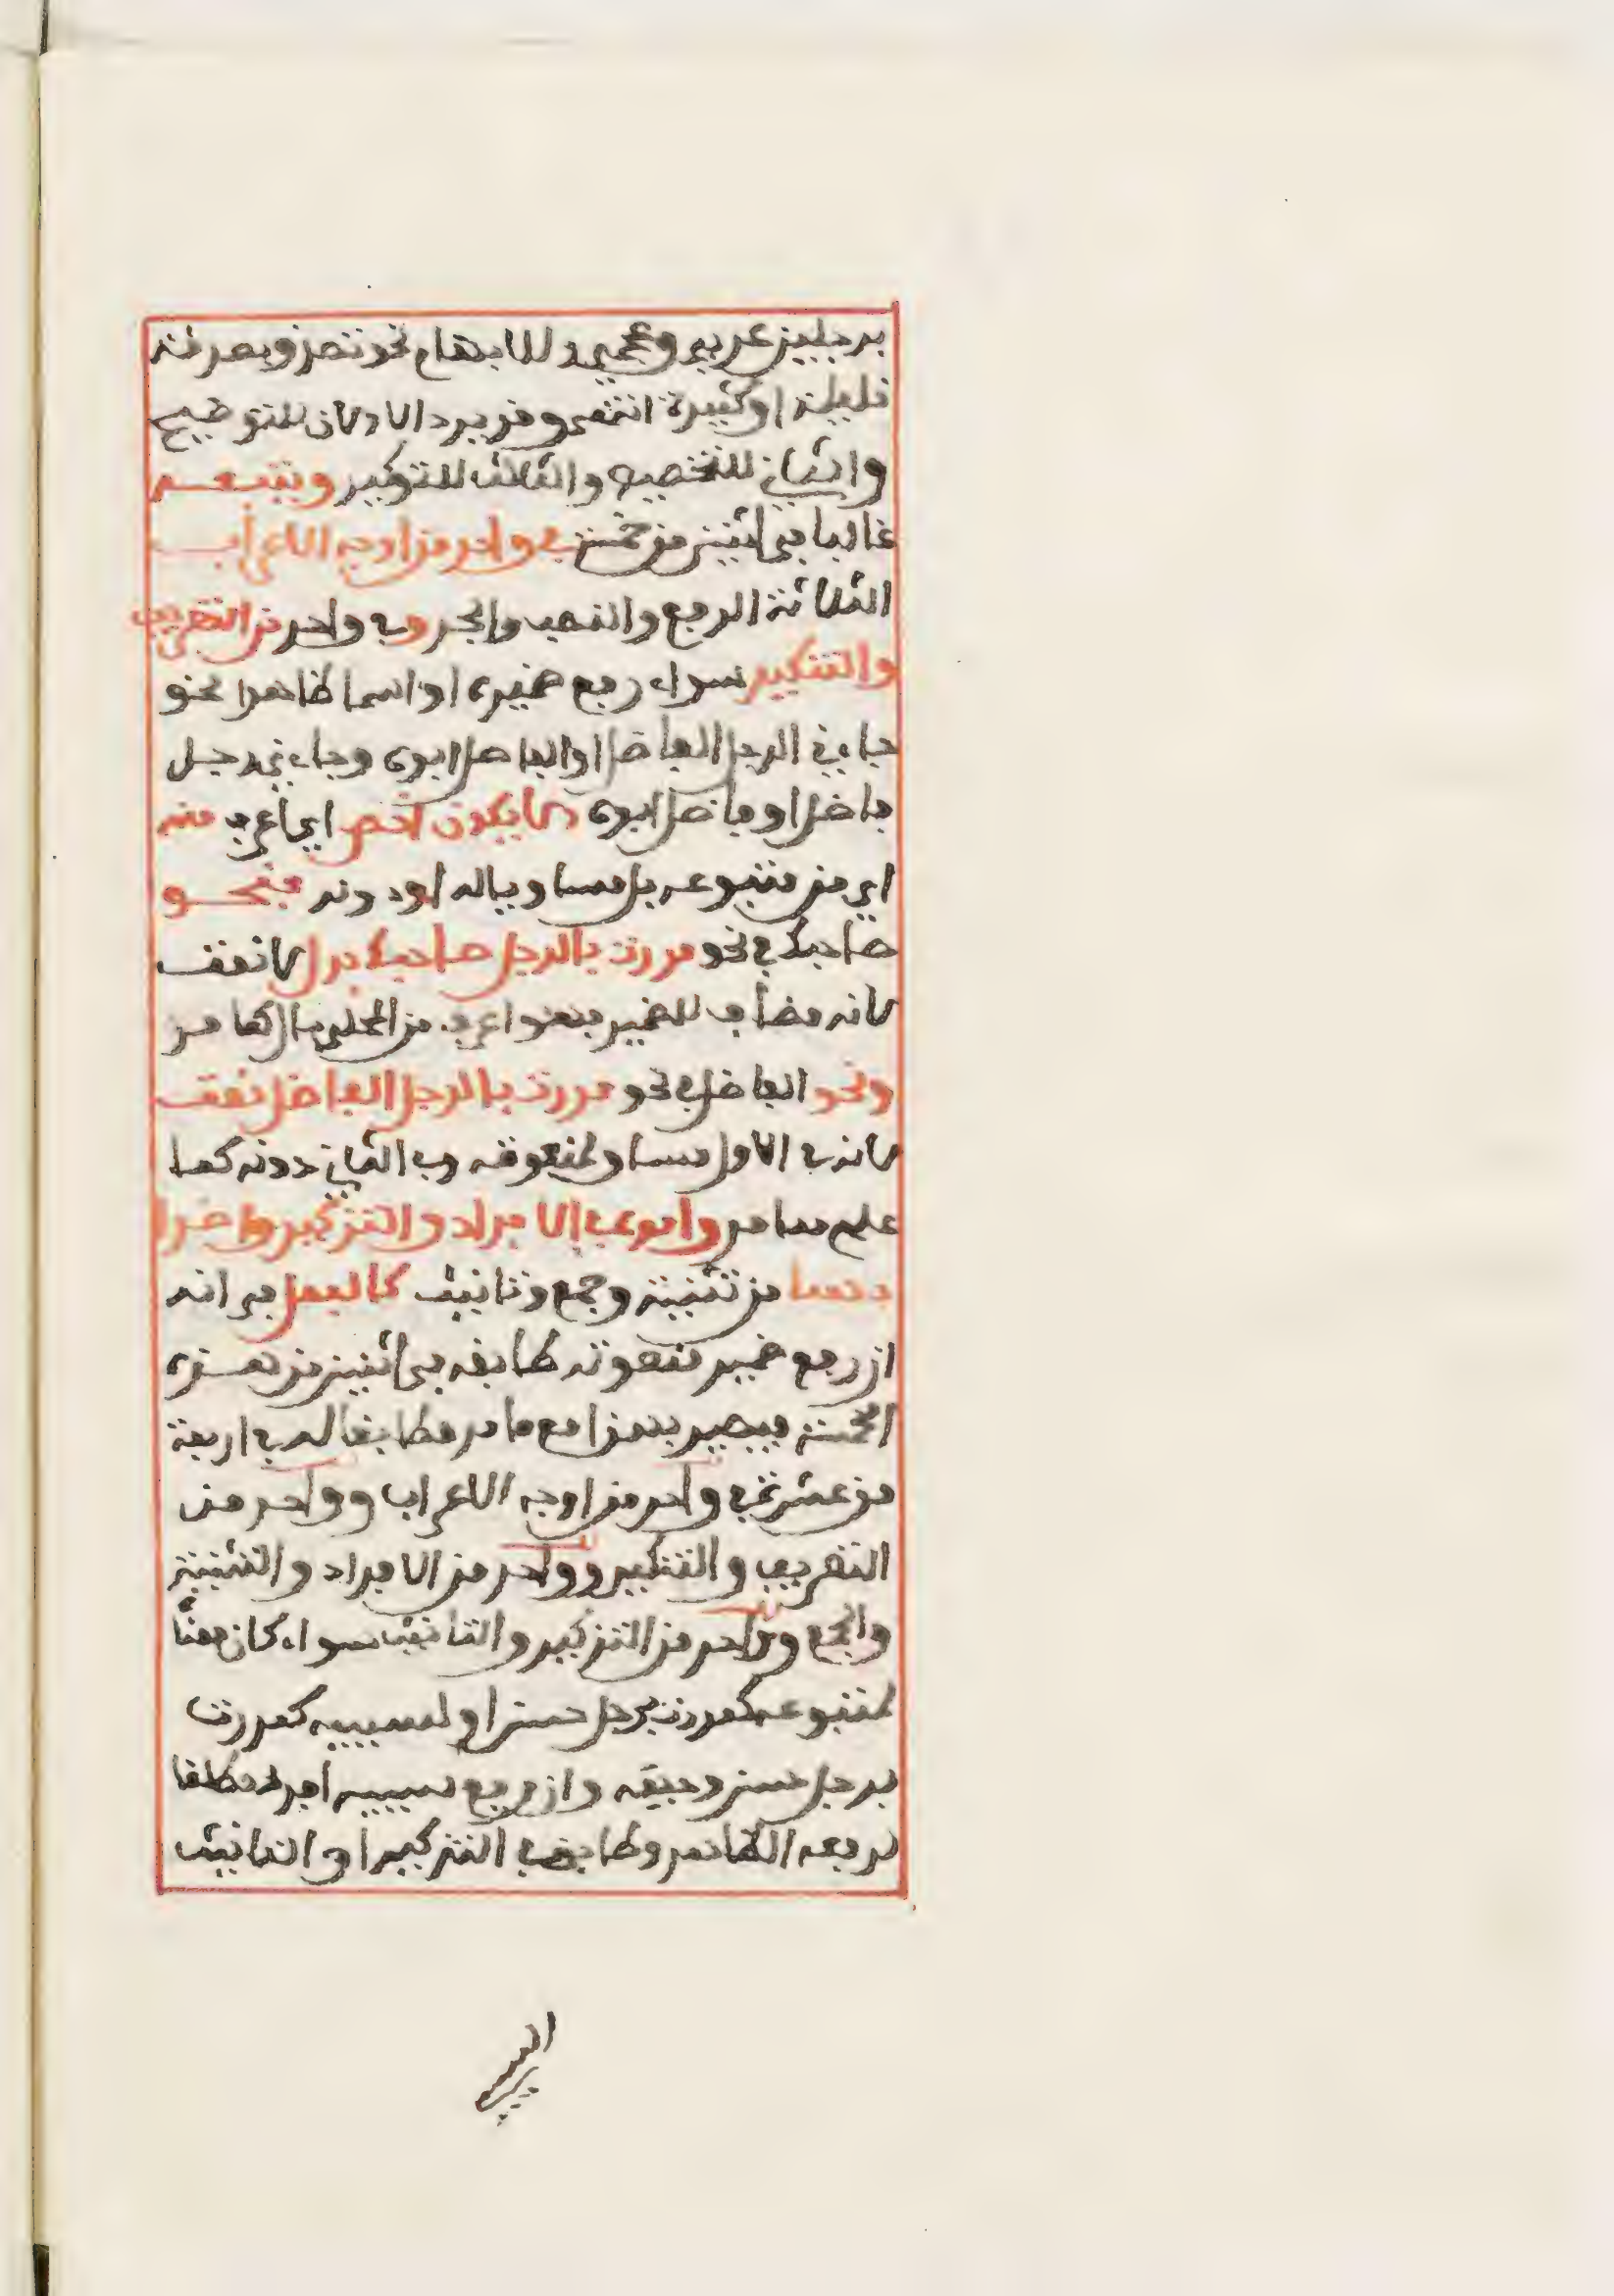 برجلين عربي وعجمي وللابهام نحو تصدق بصدقة
قليلة او كثيرة انتهى وقد يرد الاولان للتوضيح
والثاني للتخصيص والثالث للتوكيد ويتبعه
غالبا في اثنين من خمسة في واحد من اوجه الاعراب
الثلاثة الرفع والنصب والجر وفي واحد من التعريف
والتنكير سواء رفع ضميره او اسما ظاهرا نحو
جاءني الرجل الفاضل او الفاضل ابوه وجاءني رجل
فاضل او فاضل ابوه ولا يكون اخص اي اعرف منه
اي من متبوعه بل مساويا له او دونه فنحو
صاحبك في نحو مررت بالرجل صاحبك بدل لا نعت
لانه مضاف للضمير فهو اعرف من المحلى بال كما مر
ونحو الفاضل في نحو مررت بالرجل الفاضل نعت
لانه في الاول مساو لمنعوته وفي الثاني دونه كما
علم مما مر وامره في الافراد والتذكير واضدا
دهما من تثنية وجمع وتانيث كالفعل في انه
ان رفع ضمير منعوته طابقه في اثنين من هذه
الخمسة فيصير بهذا مع ما مر مطابقا له في اربعة
من عشرة في واحد من اوجه الاعراب وواحد من
التعريف والتنكير وواحد من الافراد والتثنية
والجمع وواحد من التذكير والتانيث سواء كان معنا
لمتبوعه كمررت برجل حسن او لسببيه كمررت
برجل حسن وجيه وان رفع سببيه افرد مطلقا
لرفعه الظاهر وطابق في التذكير او التانيث